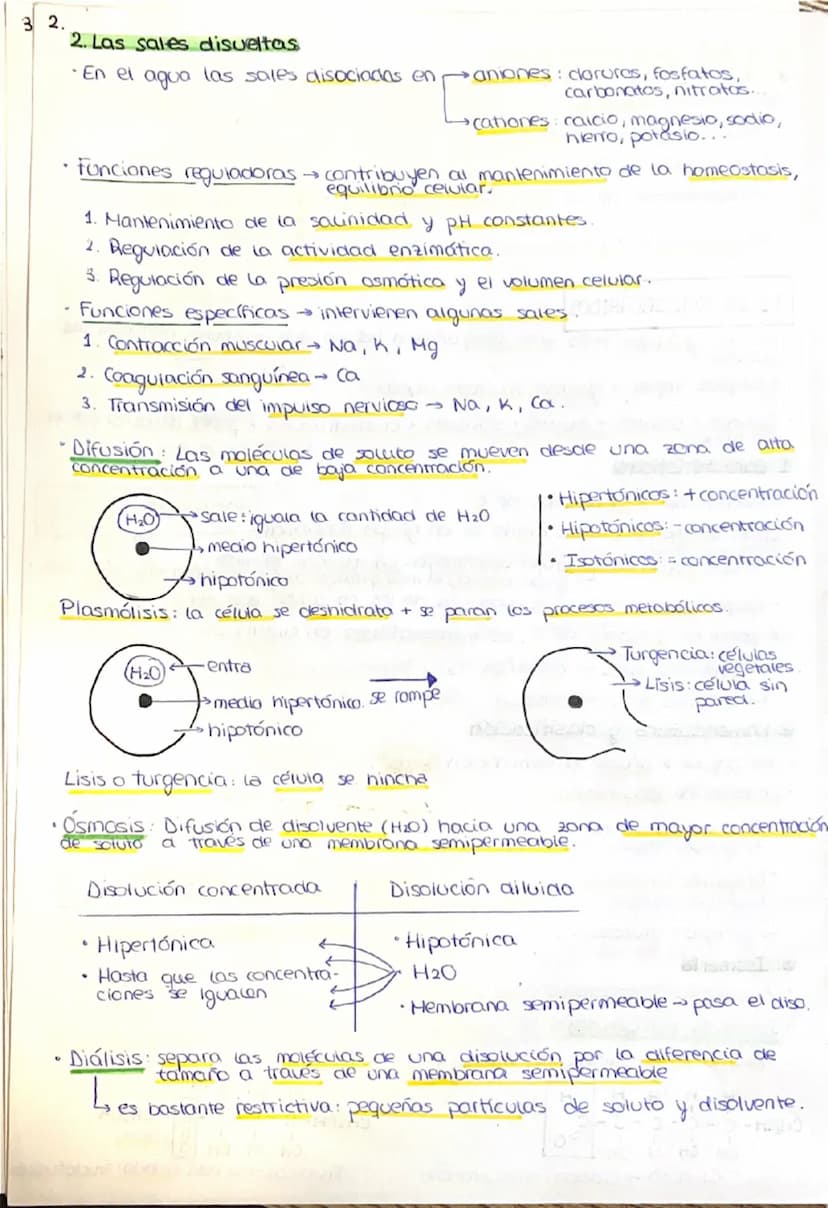 3 2.
2. Las sales disueltas
· En el agua las sales disociadas en → aniones: cloruros, fosfatos,
carbonatos, nitratos...
→ cationes: calcio, magnesio, sodio,
hierro, potasio...
· Funciones reguladoras → contribuyen al mantenimiento de la homeostasis,
equilibrio celular.
1. Mantenimiento de la salinidad y pH constantes.
2. Regulación de la actividad enzimática.
3. Regulación de la presión osmótica y el volumen celular.
· Funciones específicas → intervienen algunas sales.
1. Contracción muscular → Na, K, Mg
2. Coagulación sanguínea → Ca
3. Transmisión del impulso nervioso → Na, K, Ca.
· Difusión: Las moléculas de soluto se mueven desde una zona de alta
concentración a una de baja concentración.
H₂O → sale: iguala la cantidad de H₂O
→ medio hipertónico
→ hipotónico
· Hipertónicos: + concentración
· Hipotónicos: - concentración
· Isotónicos: = concentración
Plasmólisis: la célula se deshidrata + se paran los procesos metabólicos.
H₂O ← entra
→ medio hipertónico.
→ hipotónico
se rompe
→ Turgencia: células
vegetales.
→ Lisis: célula sin
pared.
Lisis o turgencia: la célula se hincha
· Ósmosis: Difusión de disolvente (H₂O) hacia una zona de mayor concentración
de soluto a través de una membrana semipermeable.
Disolución concentrada
· Hipertónica
· Hasta que las concentra-
ciones se igualen
Disolución diluida
· Hipotónica
· H₂O
· Membrana semipermeable → pasa el diso.
· Diálisis: separa las moléculas de una disolución por la diferencia de
tamaño a través de una membrana semipermeable
↳ es bastante restrictiva: pequeñas partículas de soluto y disolvente.